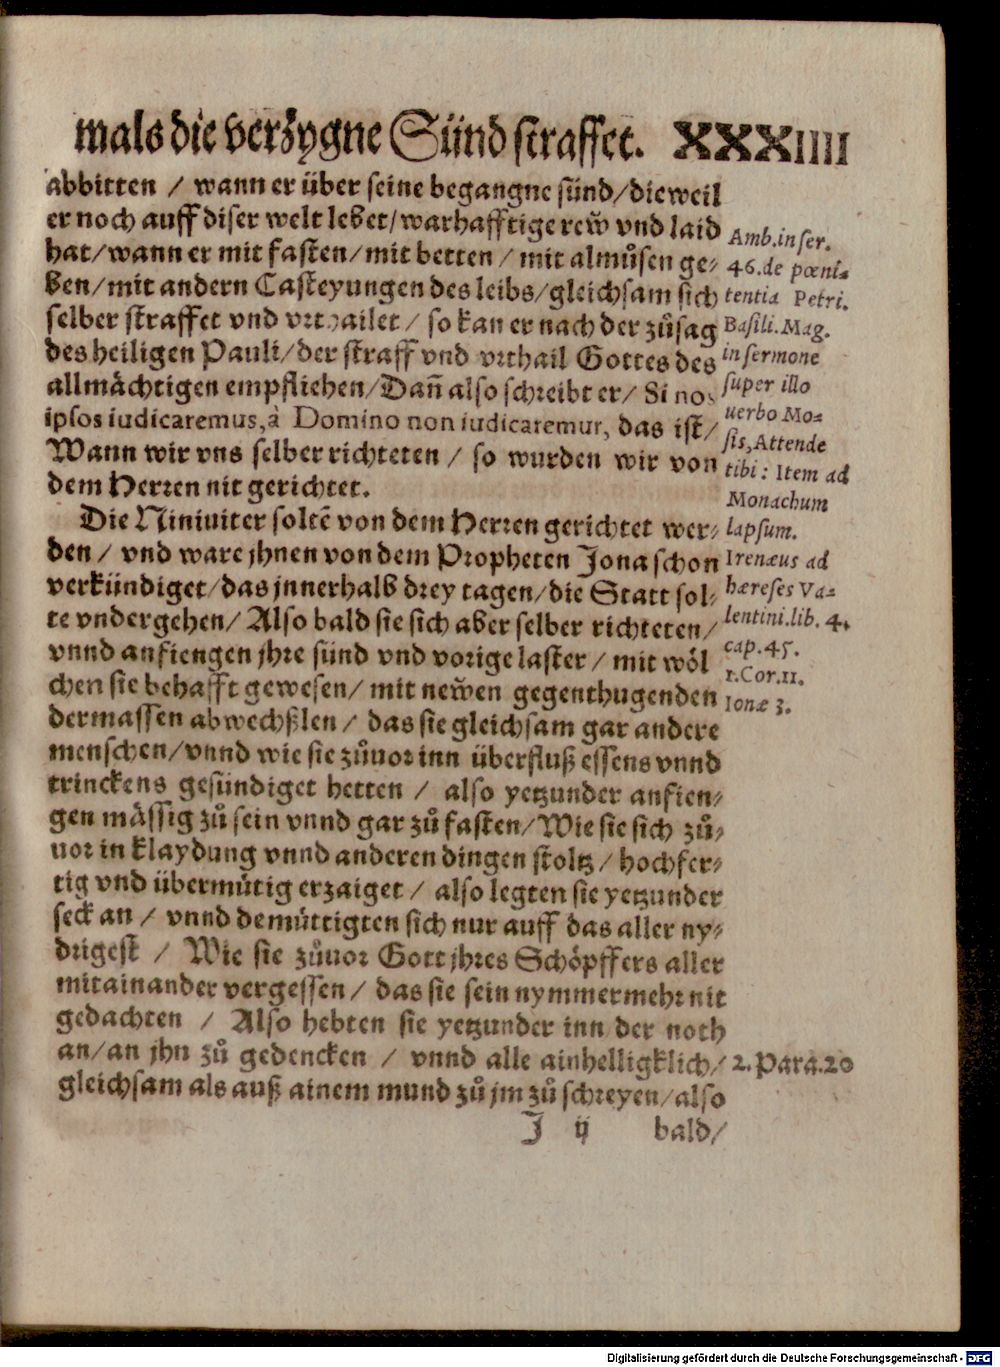 mals die verzygne Sünd straffet. XXXIIII
abbitten / wann er über seine begangne sünd/dieweil
er noch auff diser welt lebet/warhafftige rew̃ vnd laid
hat/wann er mit fasten/mit betten / mit almůsen ge-
ben/mit andern Casteyungen des leibs/gleichsam sich
selber straffet vnd vrthailet / so kan er nach der zůsag
des heiligen Pauli/der straff vnd vrthail Gottes des
allmächtigen empfliehen/Dañ also schreibt er/ Si nos
ipsos iudicaremus,à Domino non iudicaremur, das ist/
Wann wir vns selber richteten / so wurden wir von
dem Herren nit gerichtet.
Die Niniuiter soltẽ von dem Herren gerichtet wer-
den / vnd ware jhnen von dem Propheten Jona schon
verkündiget/das jnnerhalb drey tagen/die Statt sol-
te vndergehen/ Also bald sie sich aber selber richteten/
vnnd anfiengen jhre sünd vnd vorige laster / mit wöl
chen sie behafft gewesen/ mit new̃en gegenthugenden
dermassen abwechßlen / das sie gleichsam gar andere
menschen/vnnd wie sie zůuor inn überfluß essens vnnd
trinckens gesündiget hetten / also yetzunder anfien-
gen mässig zů sein vnnd gar zů fasten/Wie sie sich zů-
uor in klaydung vnnd anderen dingen stoltz / hochfer-
tig vnd übermütig erzaiget / also legten sie yetzunder
seck an / vnnd demüttigten sich nur auff das aller ny-
drigest / Wie sie zůuor Gott jhres Schöpffers aller
mitainander vergessen / das sie sein nymmermehr nit
gedachten / Also hebten sie yetzunder inn der noth
an/an jhn zů gedencken / vnnd alle ainhelligklich/
gleichsam als auß ainem mund zů jm zů schreyen/also
J ij bald/
Amb.in ser.
46.de pœni-
tentia Petri.
Basili.Mag.
in sermone
super illo
uerbo Mo-
sis,Attende
tibi: Item ad
Monachum
lapsum.
Irenæus ad
hæreses Va-
lentini.lib. 4.
cap.45.
1.Cor.11.
Ionæ 3.
2.Para.20
Digitalisierung gefördert durch die Deutsche Forschungsgemeinschaft - DFG